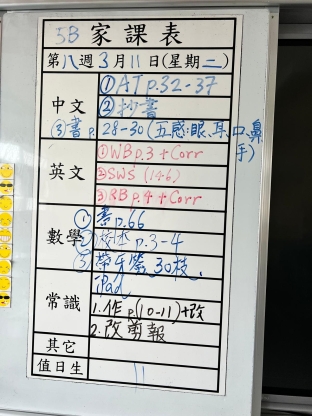 5B 家課表
第八週 3月11日(星期二)
中文
① AT p.32-37
② 抄書
③ 書 p.28-30 (五感:眼、耳、口、鼻
手)
英文
① WB p.3 + Corr
② SWS (146)
③ RB p.4 + Corr
數學
① 書 p.66
② p.3-4
③ 帶牙籤 30枝、
iPad
常識
1. 作 p.(10-11)+改
2. 改剪報
其它
值日生
11